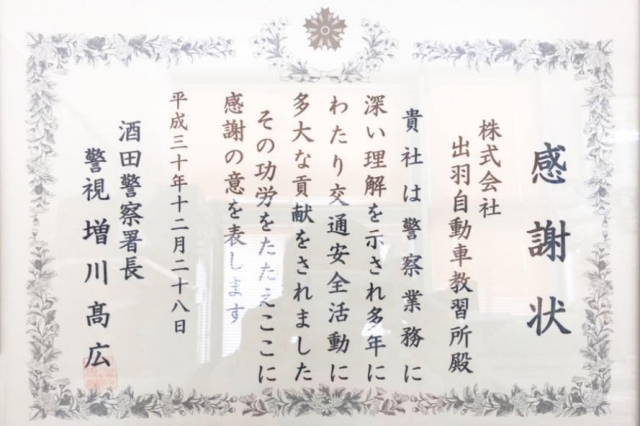 感謝状
株式会社
出羽自動車教習所殿
貴社は警察業務に
深い理解を示され多年に
わたり交通安全活動に
多大な貢献をされました
その功労をたたえここに
感謝の意を表します
平成三十年十二月二十八日
酒田警察署長
警視 増川髙広